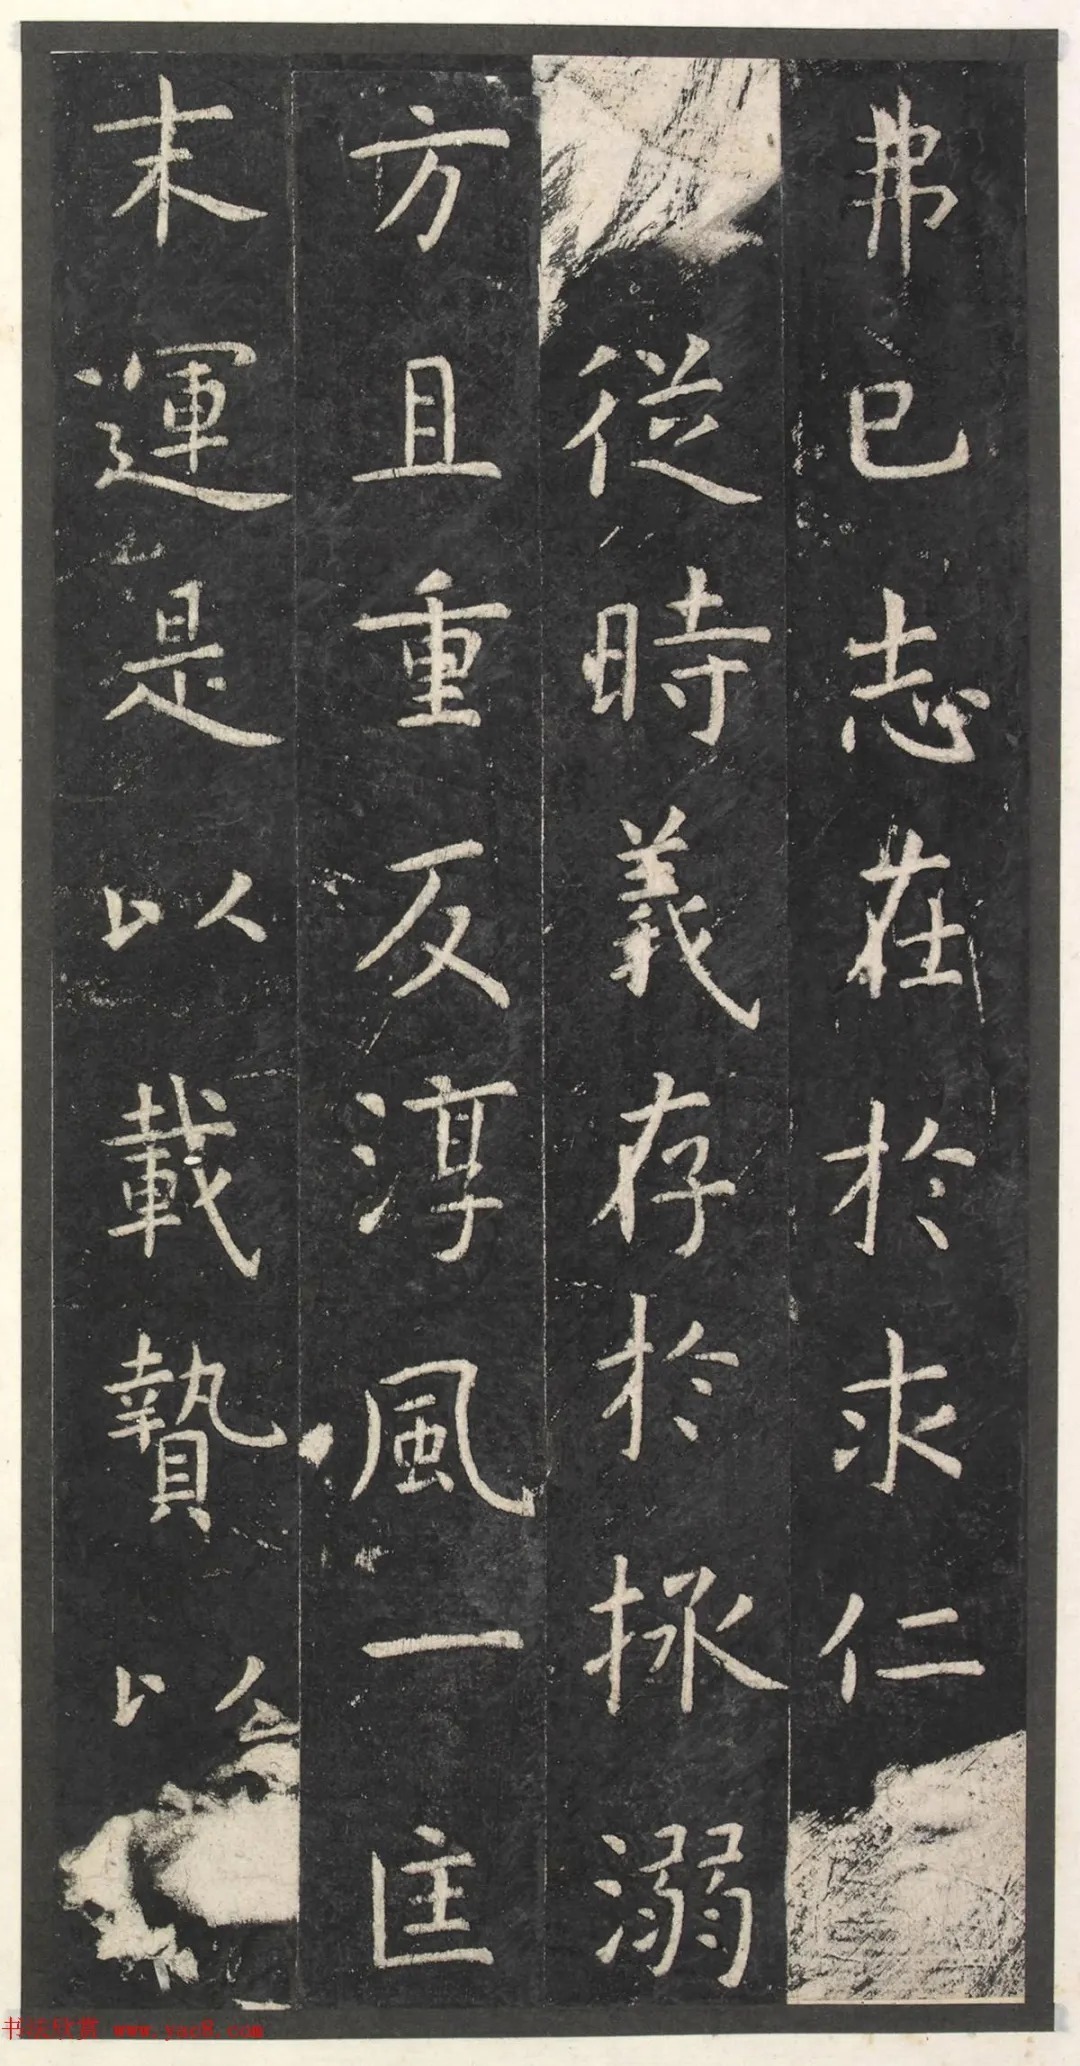 弗已志在於求仁
從時義存於拯溺
方且重反淳風一匡
末運是以載贄以
书法欣赏 www.yac8.com